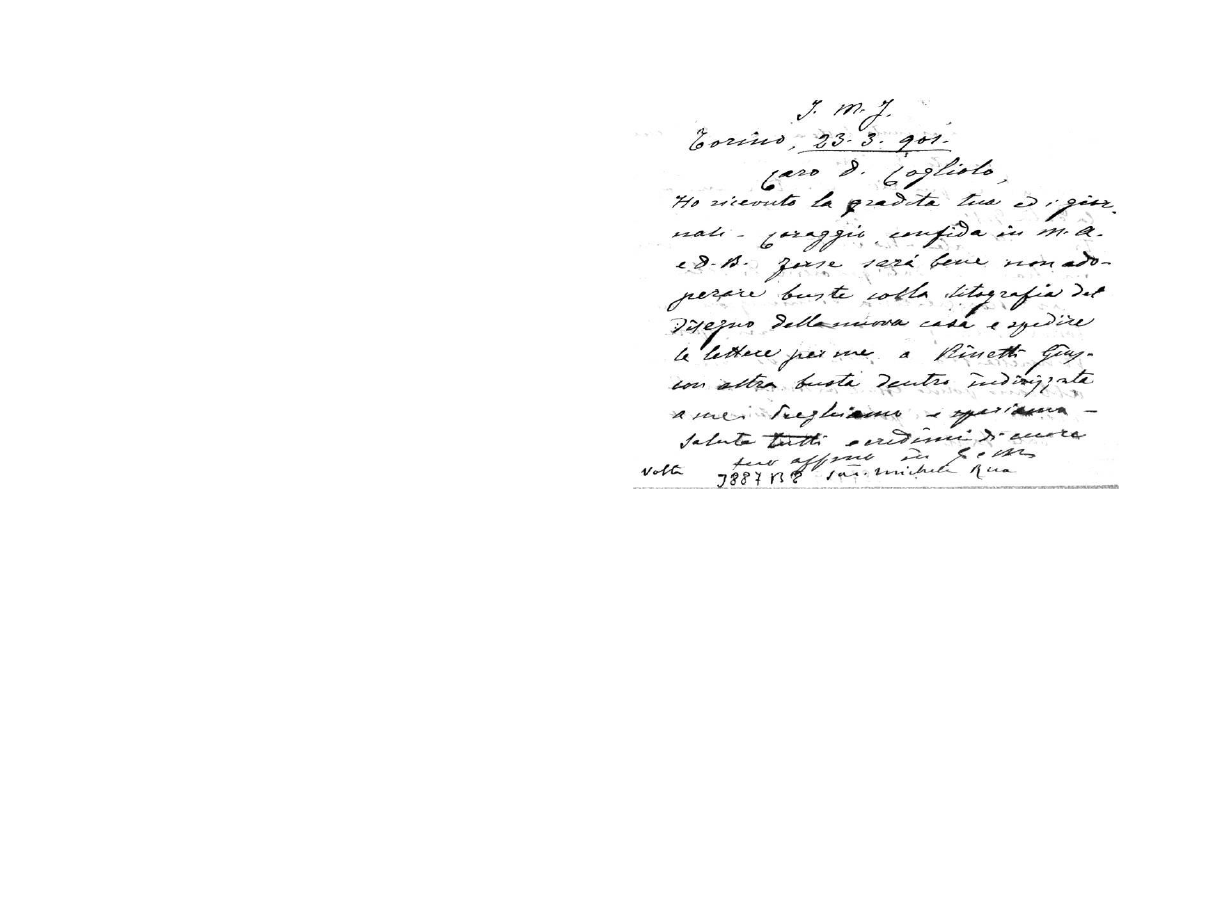 J. M. J.
Torino, 23. 3. 901.
Caro D. Cogliolo,
Ho ricevuto la gradita tua ed i gior
nali - Coraggio, confida in M. A.
e D. B. Forse sarà bene non ado-
perare buste colla litografia del
disegno della nuova casa e spedire
le lettere per me a Rinetti Gius.
con altra busta dentro indirizzata
a me. Preghiamo e speriamo -
Saluta tutti e credimi di cuore
tuo affmo in G. e M.
Volta 3887 B8 Sac. Michele Rua